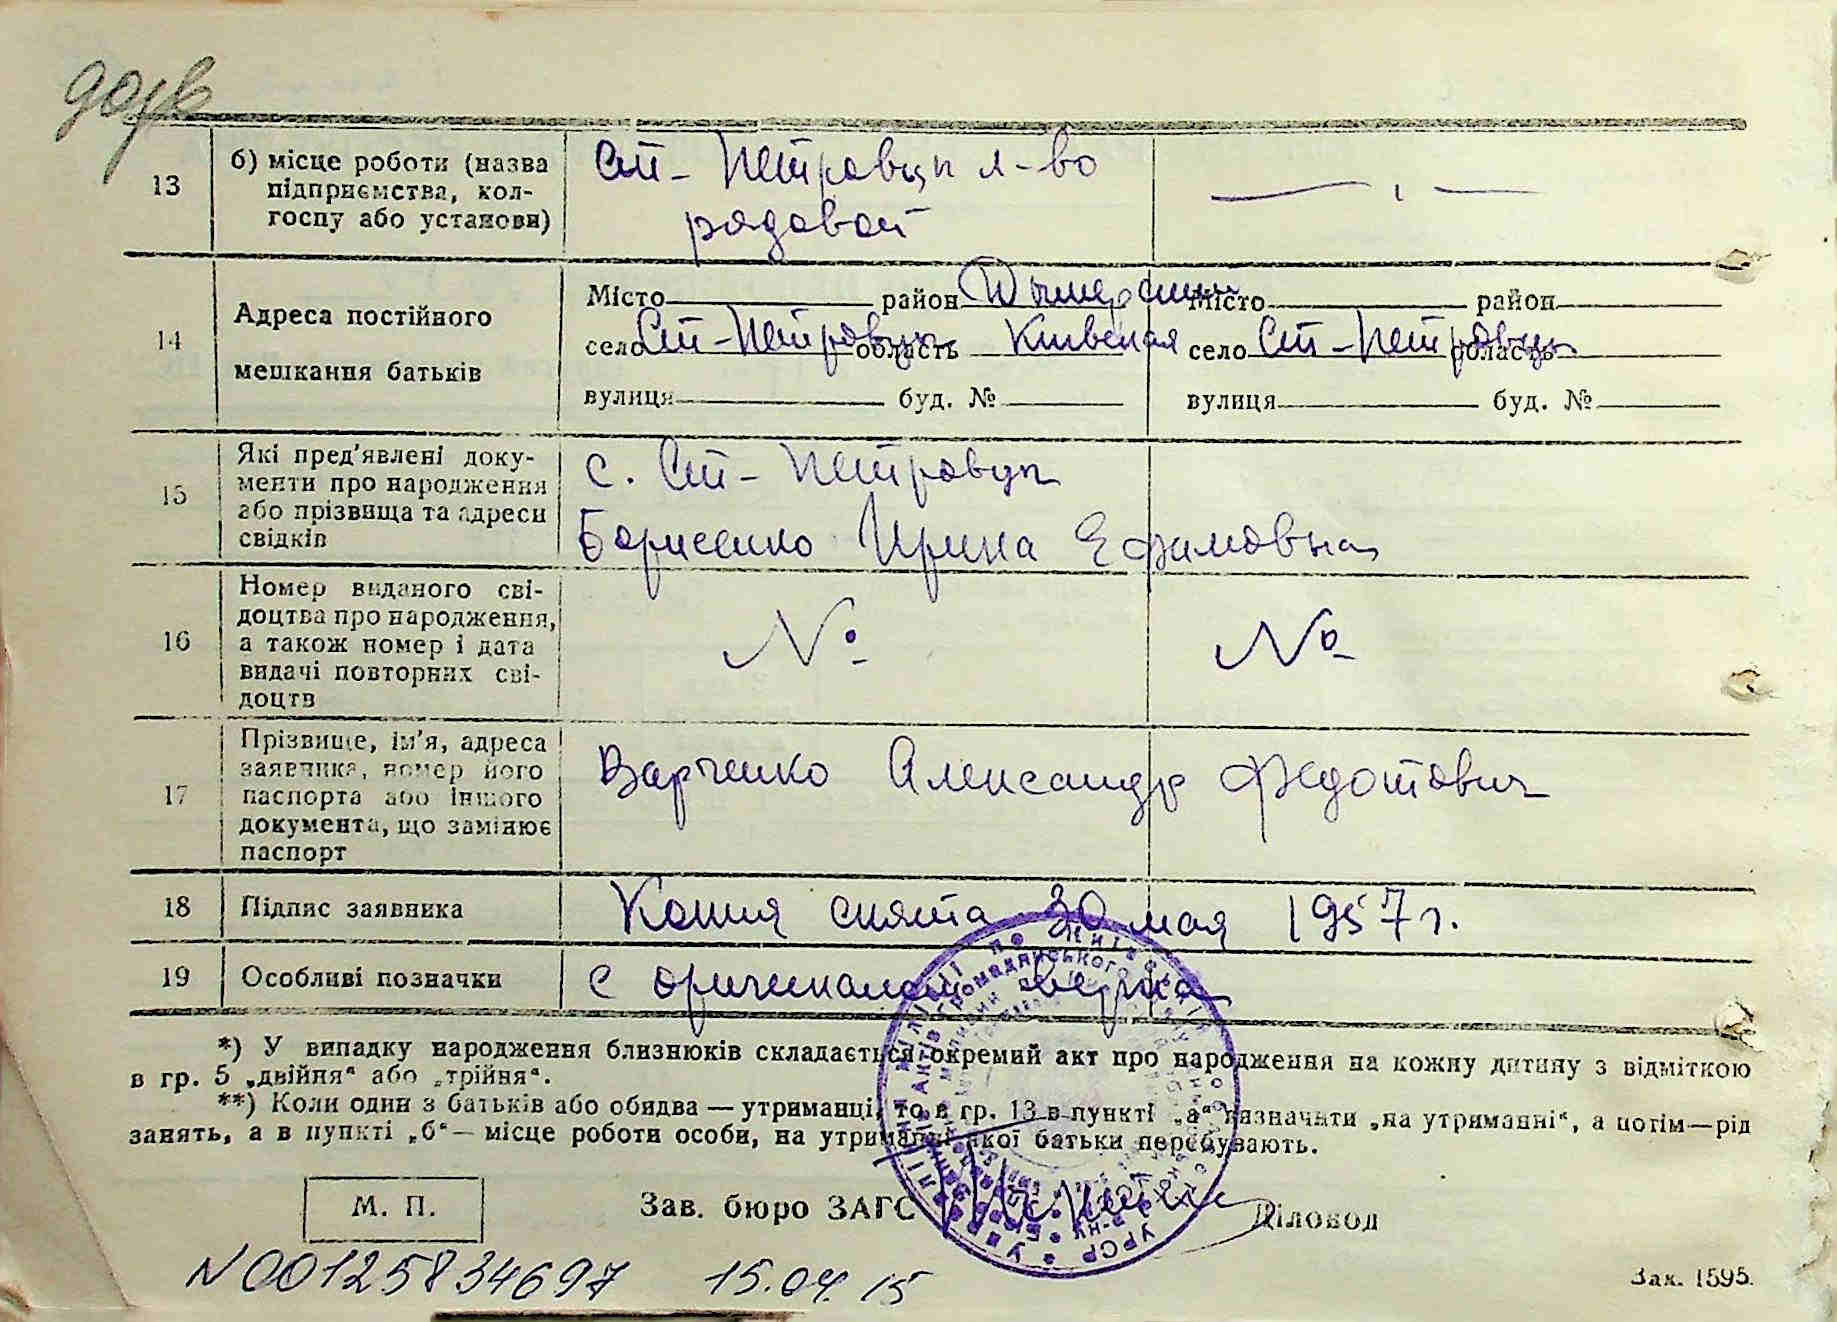 13
б) місце роботи (назва
підприємства, кол-
госпу або установи)
Ст- Петровцы л-во
рядовой
14
Адреса постійного
мешкання батьків
Місто район Дымерский
село Ст-Петровцы область Киевская
вулиця буд. №
Місто район
село Ст-Петровцы область
вулиця буд. №
15
Які пред'явлені доку-
менти про народження
або прізвища та адреси
свідків
с. Ст- Петровцы
Борисенко Ирина Ефимовна
16
Номер виданого сві-
доцтва про народження,
а також номер і дата
видачі повторних сві-
доцтв
№ №
17
Прізвище, ім'я, адреса
заявника, номер його
паспорта або іншого
документа, що замінює
паспорт
Варченко Александр Федотович
18
Підпис заявника
Копия снята 30 мая 1957 г.
19
Особливі позначки
с оригиналом верна
*) У випадку народження близнюків складається окремий акт про народження на кожну дитину з відміткою
в гр. 5 „двійня“ або „трійня“.
**) Коли один з батьків або обидва — утриманці, то в гр. 13 в пункті „а“ зазначити „на утриманні“, а потім—рід
занять, а в пункті „б“— місце роботи особи, на утриманні якої батьки перебувають.
М. П.
Зав. бюро ЗАГС
Діловод
N00125834697 15.04.15
Зак. 1595.